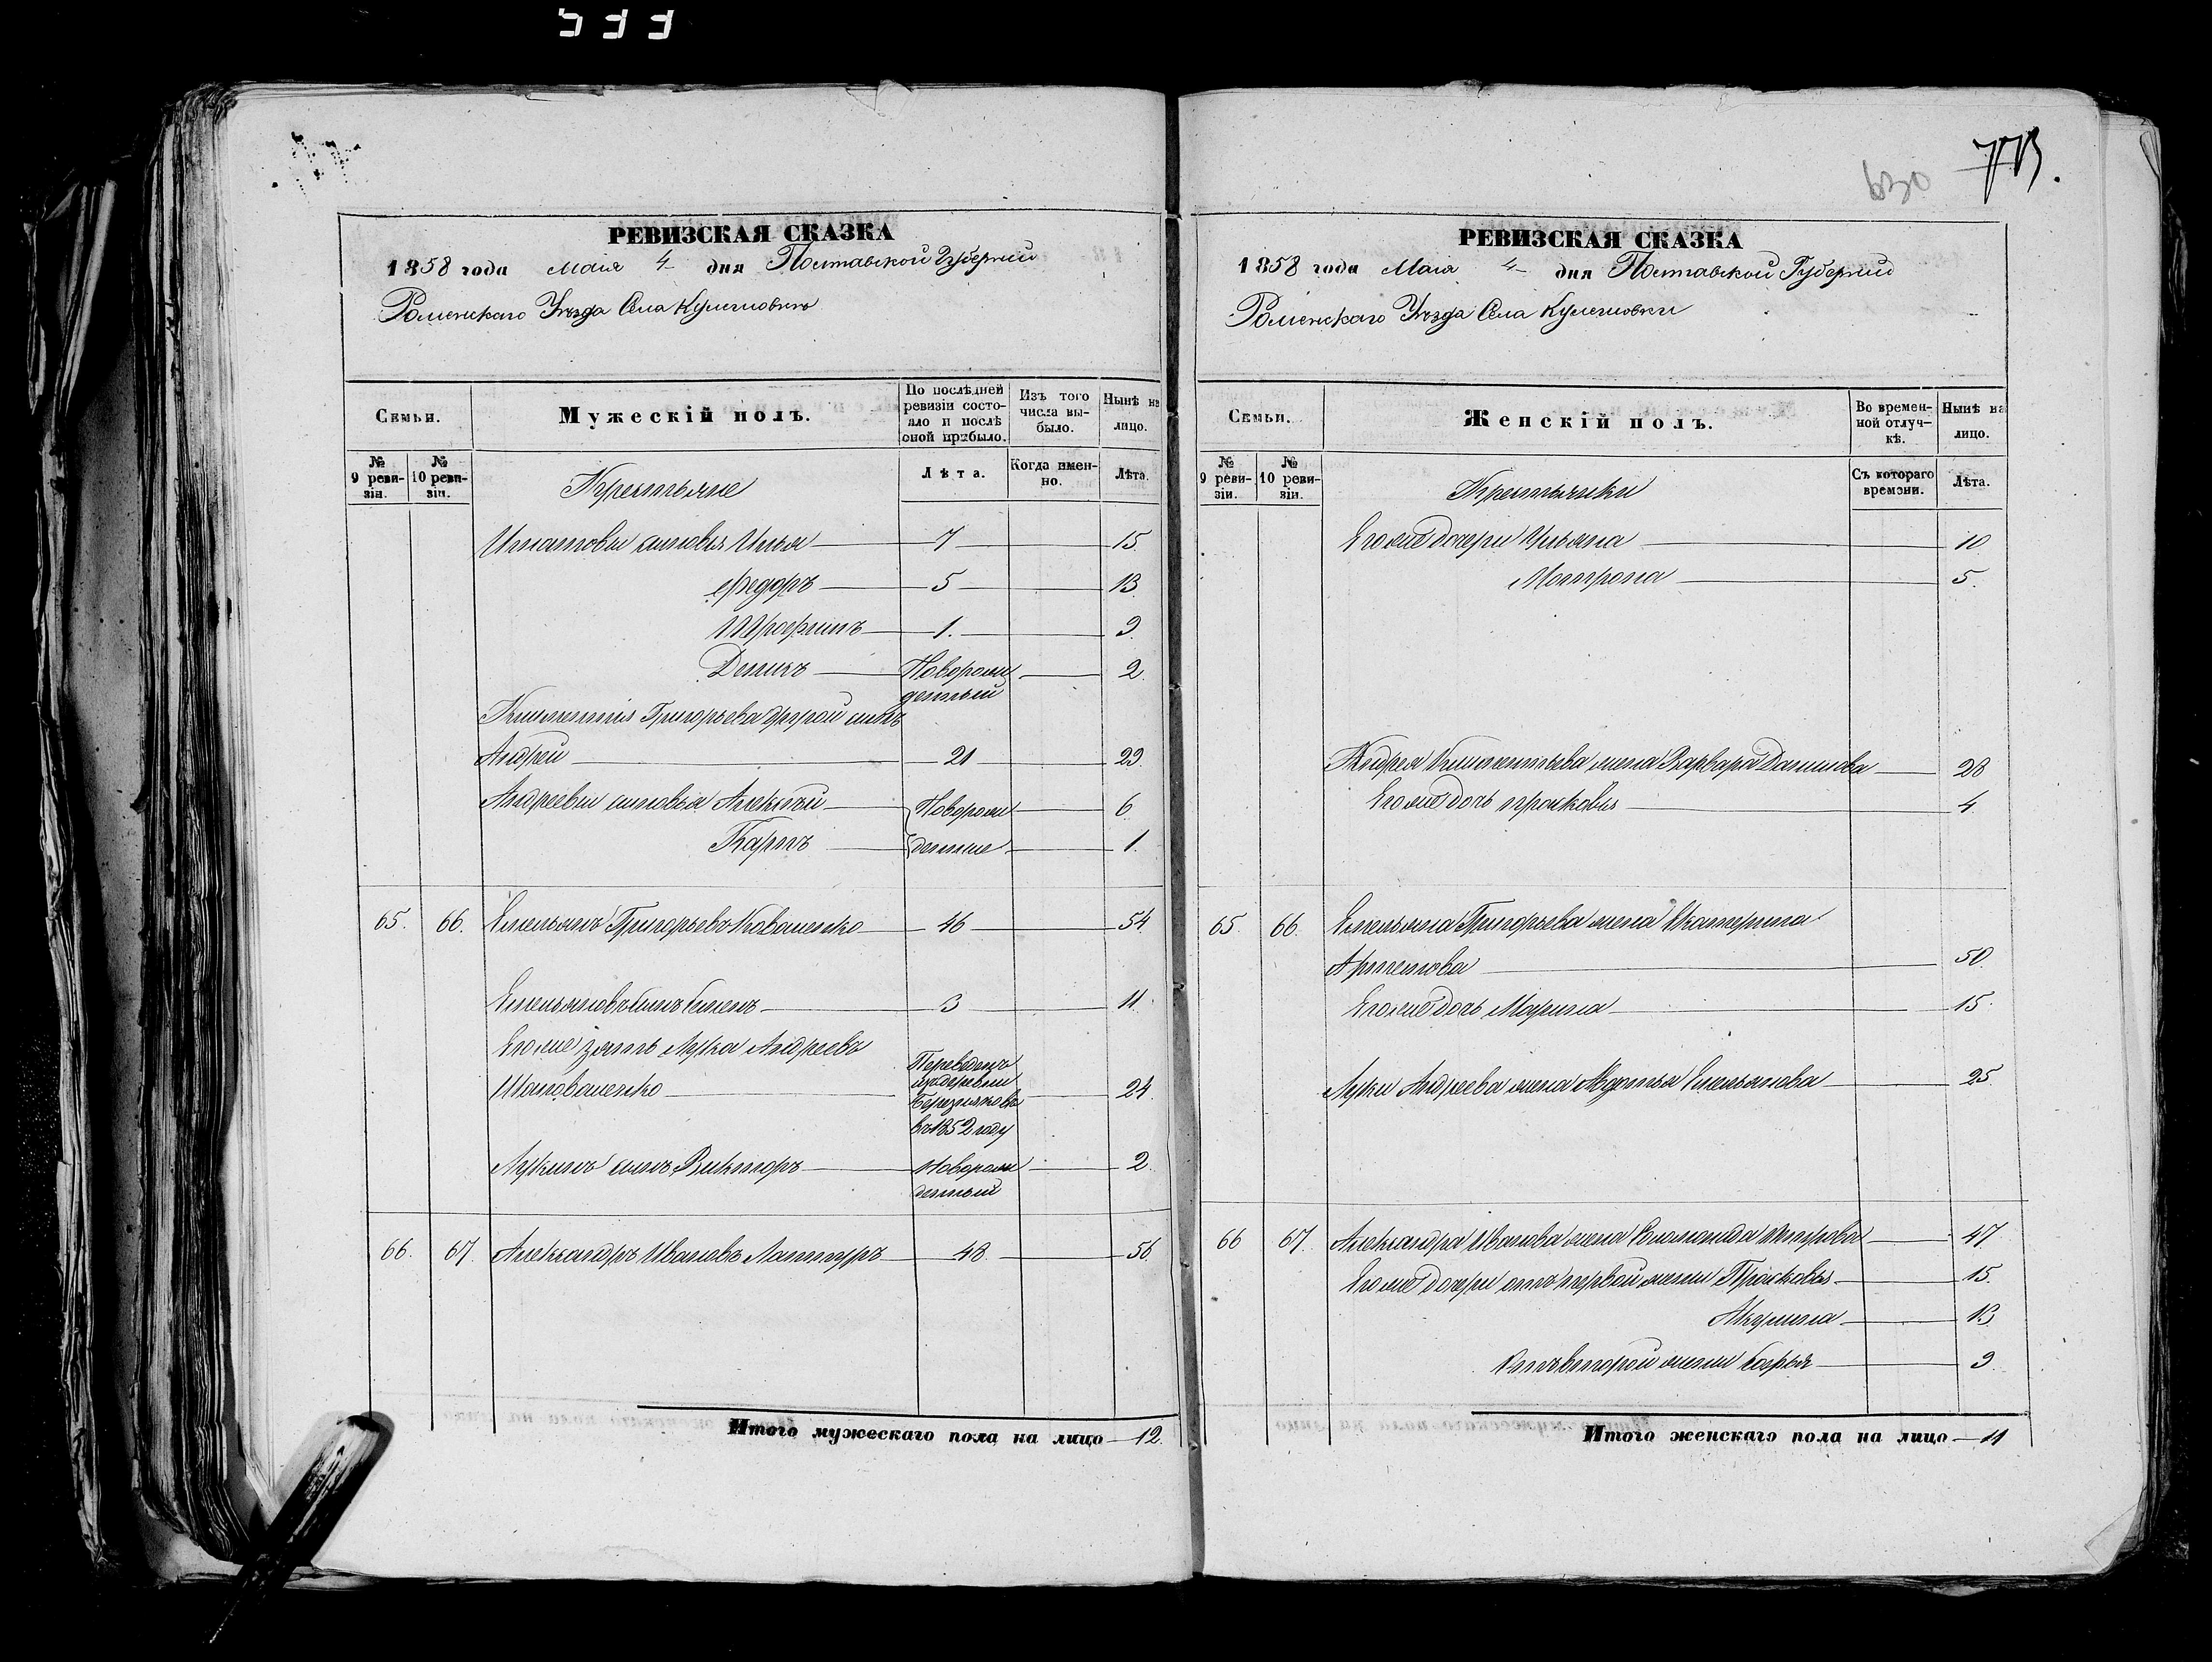 533
РЕВИЗСКАЯ СКАЗКА
1858 года Маія 4 дня Полтавской Губерніи
Роменскаго Уѣзда Села Кулешовки
Семьи.
Мужескій полъ.
По послѣдней ревизіи состо-
яло и послѣ
оной прибыло.
Изъ того
числа вы-
было.
Нынѣ на
лицо.
№
9 реви-
зіи.
№
10 реви-
зіи.
Крестьяне
Лѣта.
Когда имен-
но.
Лѣта.
Игнатовы сыновья Илья 7 15.
Федоръ 5 13.
Трофимъ 1. 9.
Денисъ Новорож 2.
денный
Климентія Григорьева другой сынъ
Андрей 21 29
Андреевы сыновья Алексѣй Новорож 6.
Карпъ денные 1.
65. 66. Емельянъ Григорьевъ Коваленко 46 54.
Емельяновъ сынъ Семенъ 3 11.
Его же зять Лука Андреевъ
Шаповаленко Переведенъ
изъ деревни
въ 1852 году 24.
Лукинъ сынъ Викторъ Новорож 2.
денный
66. 67. Александръ Ивановъ 48. 56.
Итого мужескаго пола на лицо 12.
630
773.
РЕВИЗСКАЯ СКАЗКА
1858 года Маія 4 дня Полтавской Губерніи
Роменскаго Уѣзда Села Кулешовки
Семьи.
Женскій полъ.
Во времен-
ной отлуч-
кѣ.
Нынѣ на
лицо.
№
9 реви-
зіи.
№
10 реви-
зіи.
Крестьянки
Съ котораго
времени.
Лѣта.
Его же дочери Ульяна 10
Мотрона 5.
Андрея Климентьева жена Варвара Данилова 28
Его же дочь Прасковья 4.
65. 66. Емельяна Григорьева жена Екатерина
Артемова 50.
Его же дочь Марина 15.
Луки Андреева жена Авдотья Емельянова 25
66 67. Александра Иванова жена Соломонида Петрова 47
Его же дочери отъ первой жены Прасковья 15.
Акулина 13
Отъ второй жены Софья 9
Итого женскаго пола на лицо 11